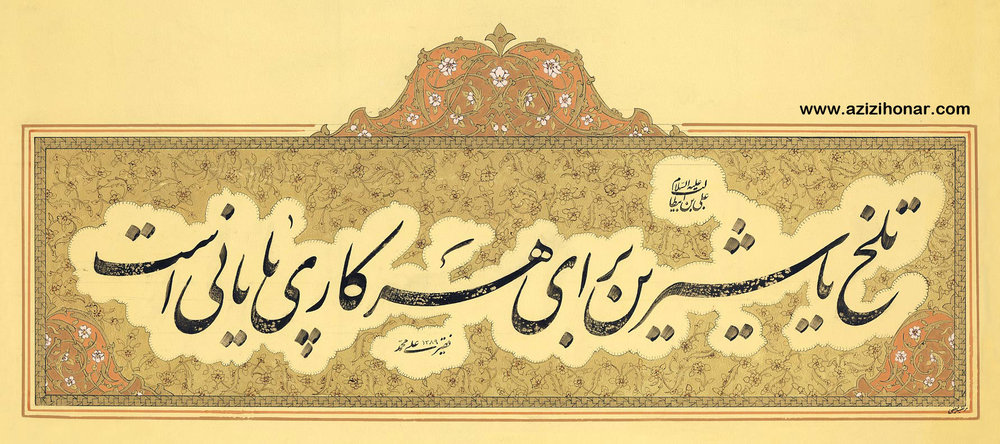 www.azizihonar.com
علی بن ابیطالب علیه السلام
تلخ یا شیرین برای هر کاری پایانی است
۱۳۸۹